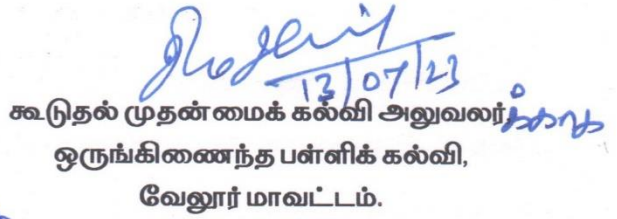 13/07/23
கூடுதல் முதன்மைக் கல்வி அலுவலர்க்காக
ஒருங்கிணைந்த பள்ளிக் கல்வி,
வேலூர் மாவட்டம்.